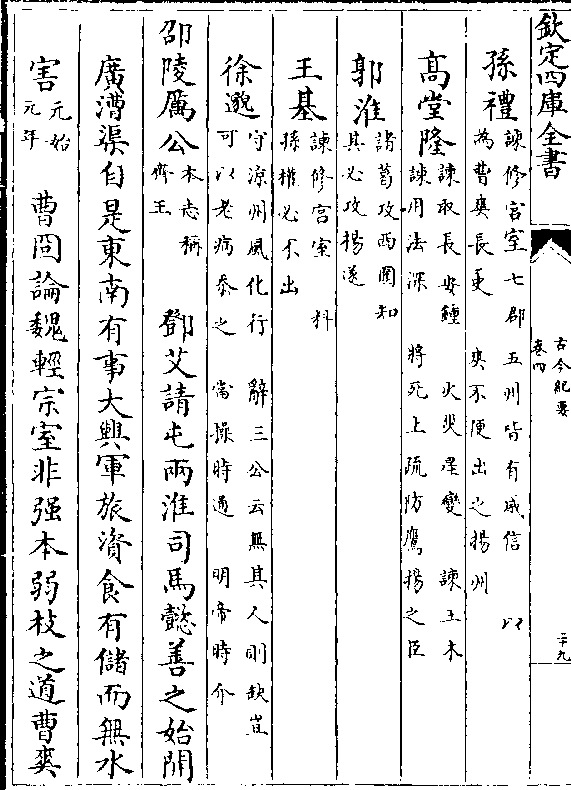 欽定四庫全書
古今紀要
卷四
二十九
孫禮
諫修宮室 七郡五州皆有威信 以
為曹爽長吏 爽不便出之揚州
高堂隆
諫取長安鍾 火災星變 諫土木
諫用法深 將死上疏防鷹揚之臣
郭淮
諸葛攻西圍知
其必攻揚遂
王基
諫修宮室 料
孫權必不出
徐邈
守涼州風化行 辭三公云無其人則缺豈
可以老病忝之 當操時通 明帝時介
邵陵厲公
本志稱
齊王
鄧艾請屯兩淮司馬懿善之始開
廣漕渠自是東南有事大興軍旅資食有儲而無水
害
元始
元年
曹冏論魏輕宗室非强本弱枝之道曹爽